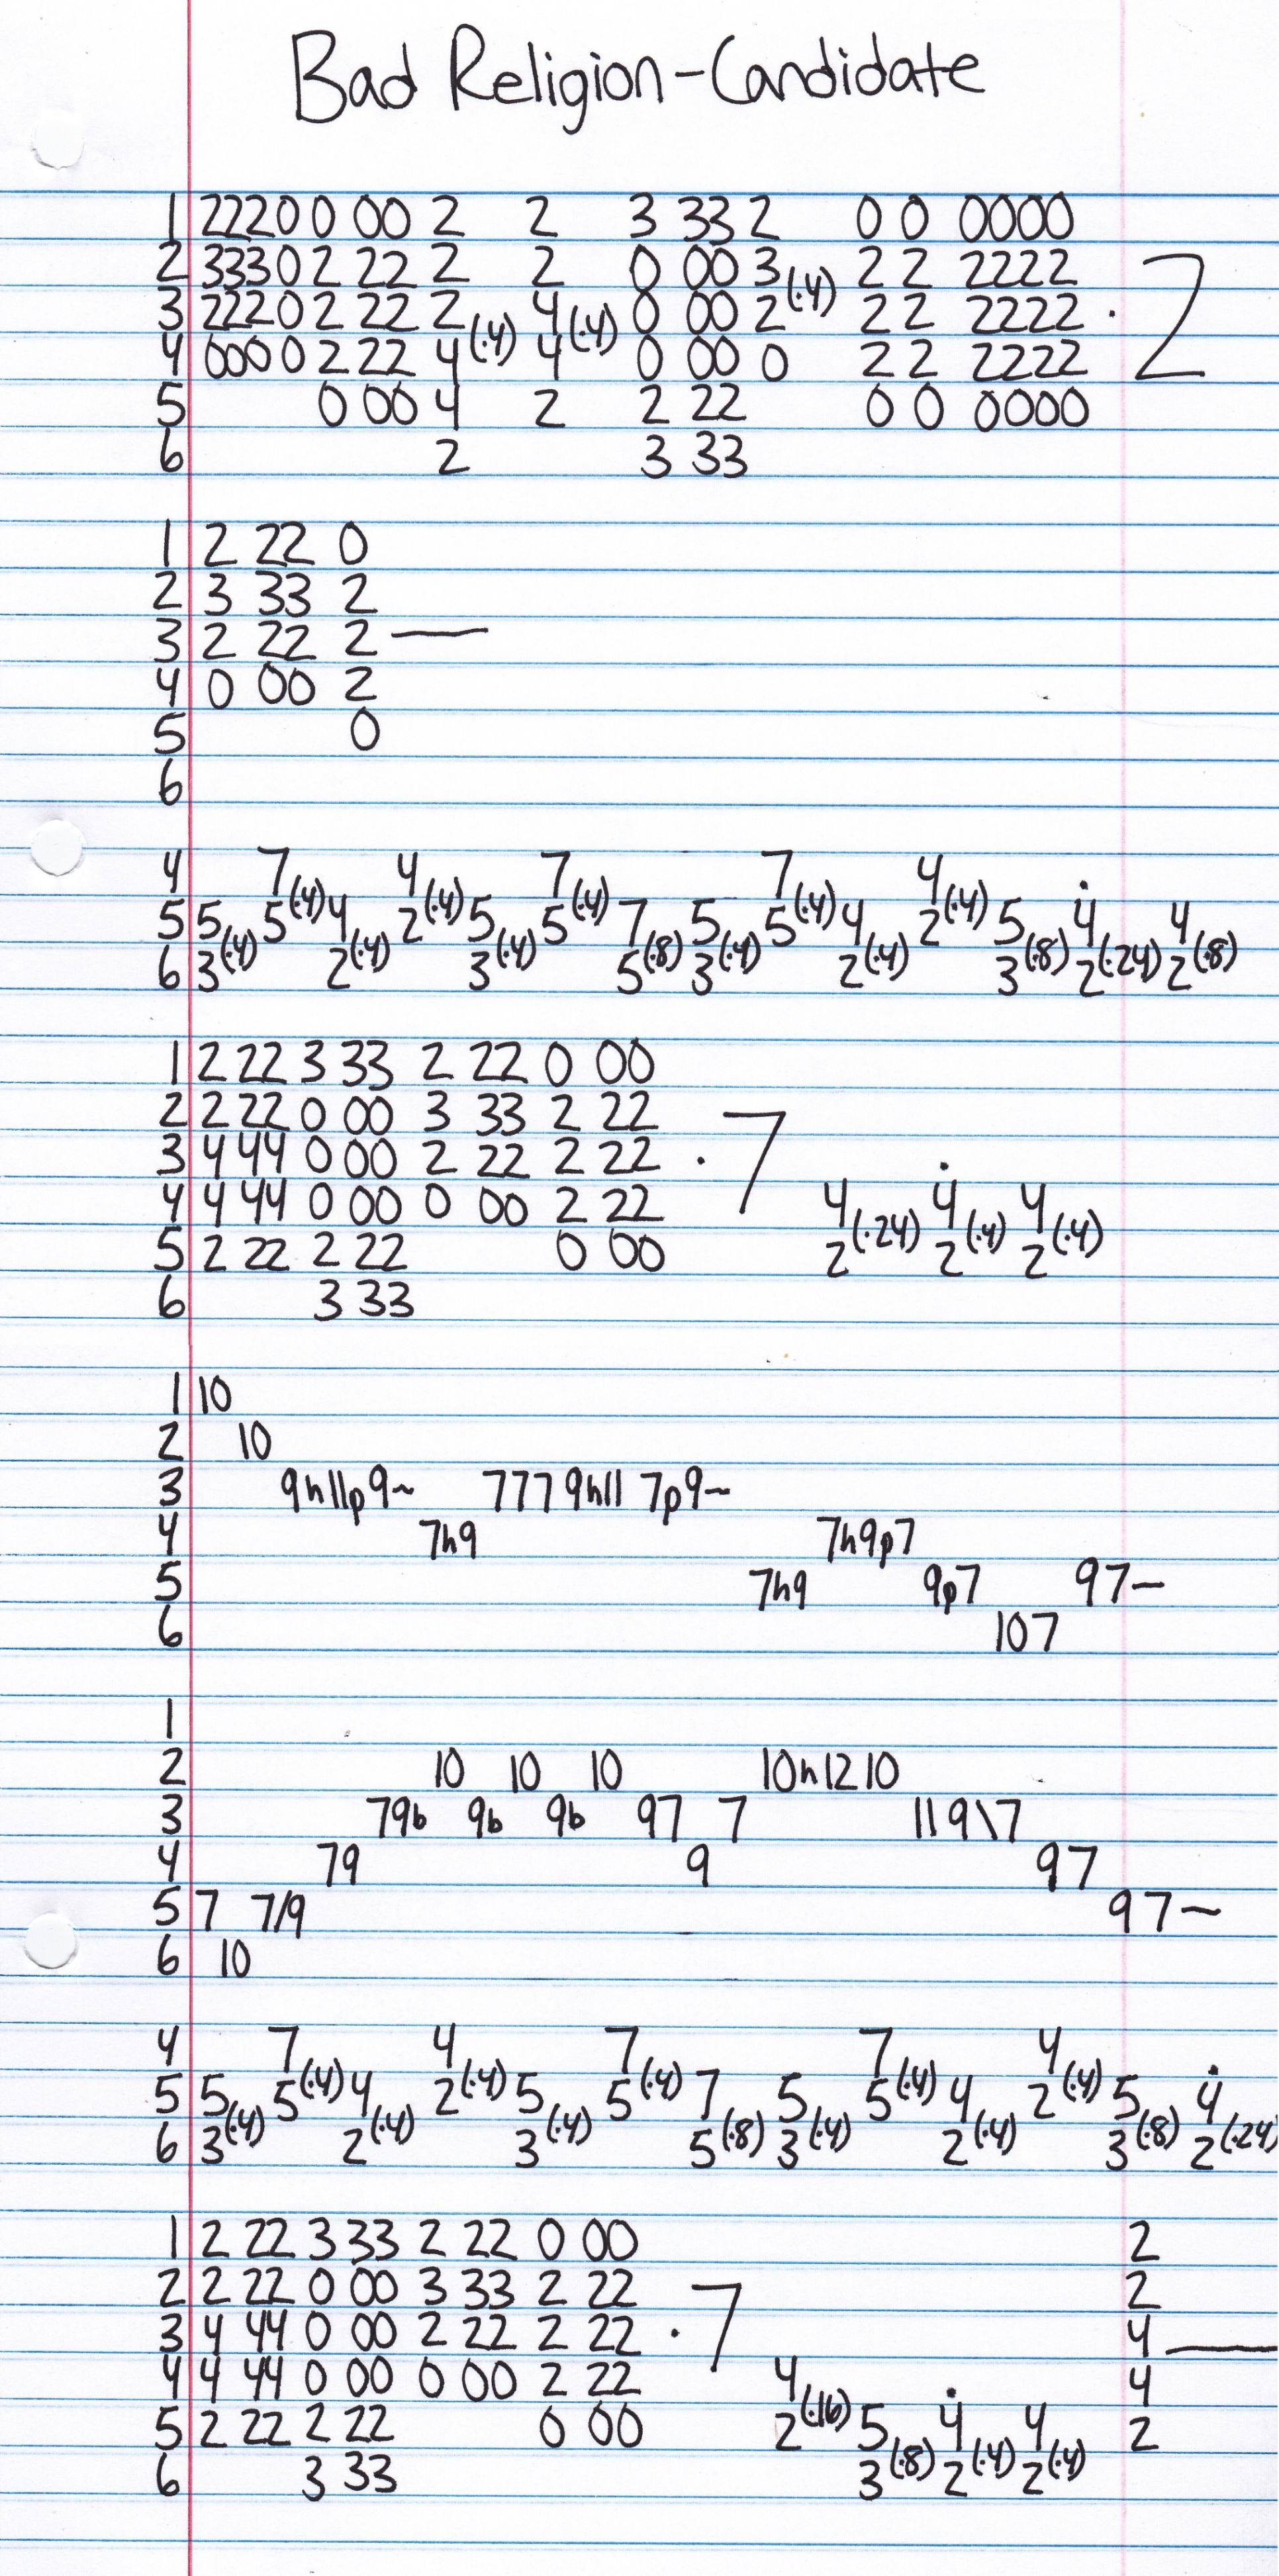 Bad Religion-Candidate
1 2220 0 00 2 2 3 33 2 0 0 0000
2 3330 2 22 2 2 0 00 3(.4) 2 2 2222
3 2220 2 22 2(.4) 4(.4) 0 00 2 2 2 2222 . 2
4 0000 2 22 4 4 0 00 0 2 2 2222
5 0 00 4 2 2 22 0 0 0000
6 2 3 33
1 2 22 0
2 3 33 2
3 2 22 2 —
4 0 00 2
5 0
6
4 7 4 7 7 4
5 5(.4) 5(.4) 4(.4) 2(.4) 5(.4) 5(.4) 7(.8) 5(.4) 5(.4) 4(.4) 2(.4) 5(.8) 4̇(.24) 4(.8)
6 3 2 3 5 3 2 3 2 2
1 2 22 3 33 2 22 0 00
2 2 22 0 00 3 33 2 22
3 4 44 0 00 2 22 2 22 . 7
4 4 44 0 00 0 00 2 22 4(.24) 4̇(.4) 4(.4)
5 2 22 2 22 0 00 2 2 2
6 3 33
1 10
2 10
3 9h11p9~ 777 9h11 7p9~
4 7h9 7h9p7
5 7h9 9p7 97—
6 107
1
2 10 10 10 10h12 10
3 79b 9b 9b 97 7 11 9\7
4 79 9 97
5 7 7/9 97~
6 10
4 7 4 7 7 4
5 5(.4) 5(.4) 4(.4) 2(.4) 5(.4) 5(.4) 7(.8) 5(.4) 5(.4) 4(.4) 2(.4) 5(.8) 4̇(.24)
6 3 2 3 5 3 2 3 2
1 2 22 3 33 2 22 0 00 2
2 2 22 0 00 3 33 2 22 2
3 4 44 0 00 2 22 2 22 . 7 4 —
4 4 44 0 00 0 00 2 22 4(.16) 4
5 2 22 2 22 0 00 2 5(.8) 4̇(.4) 4(.4) 2
6 3 33 3 2 2